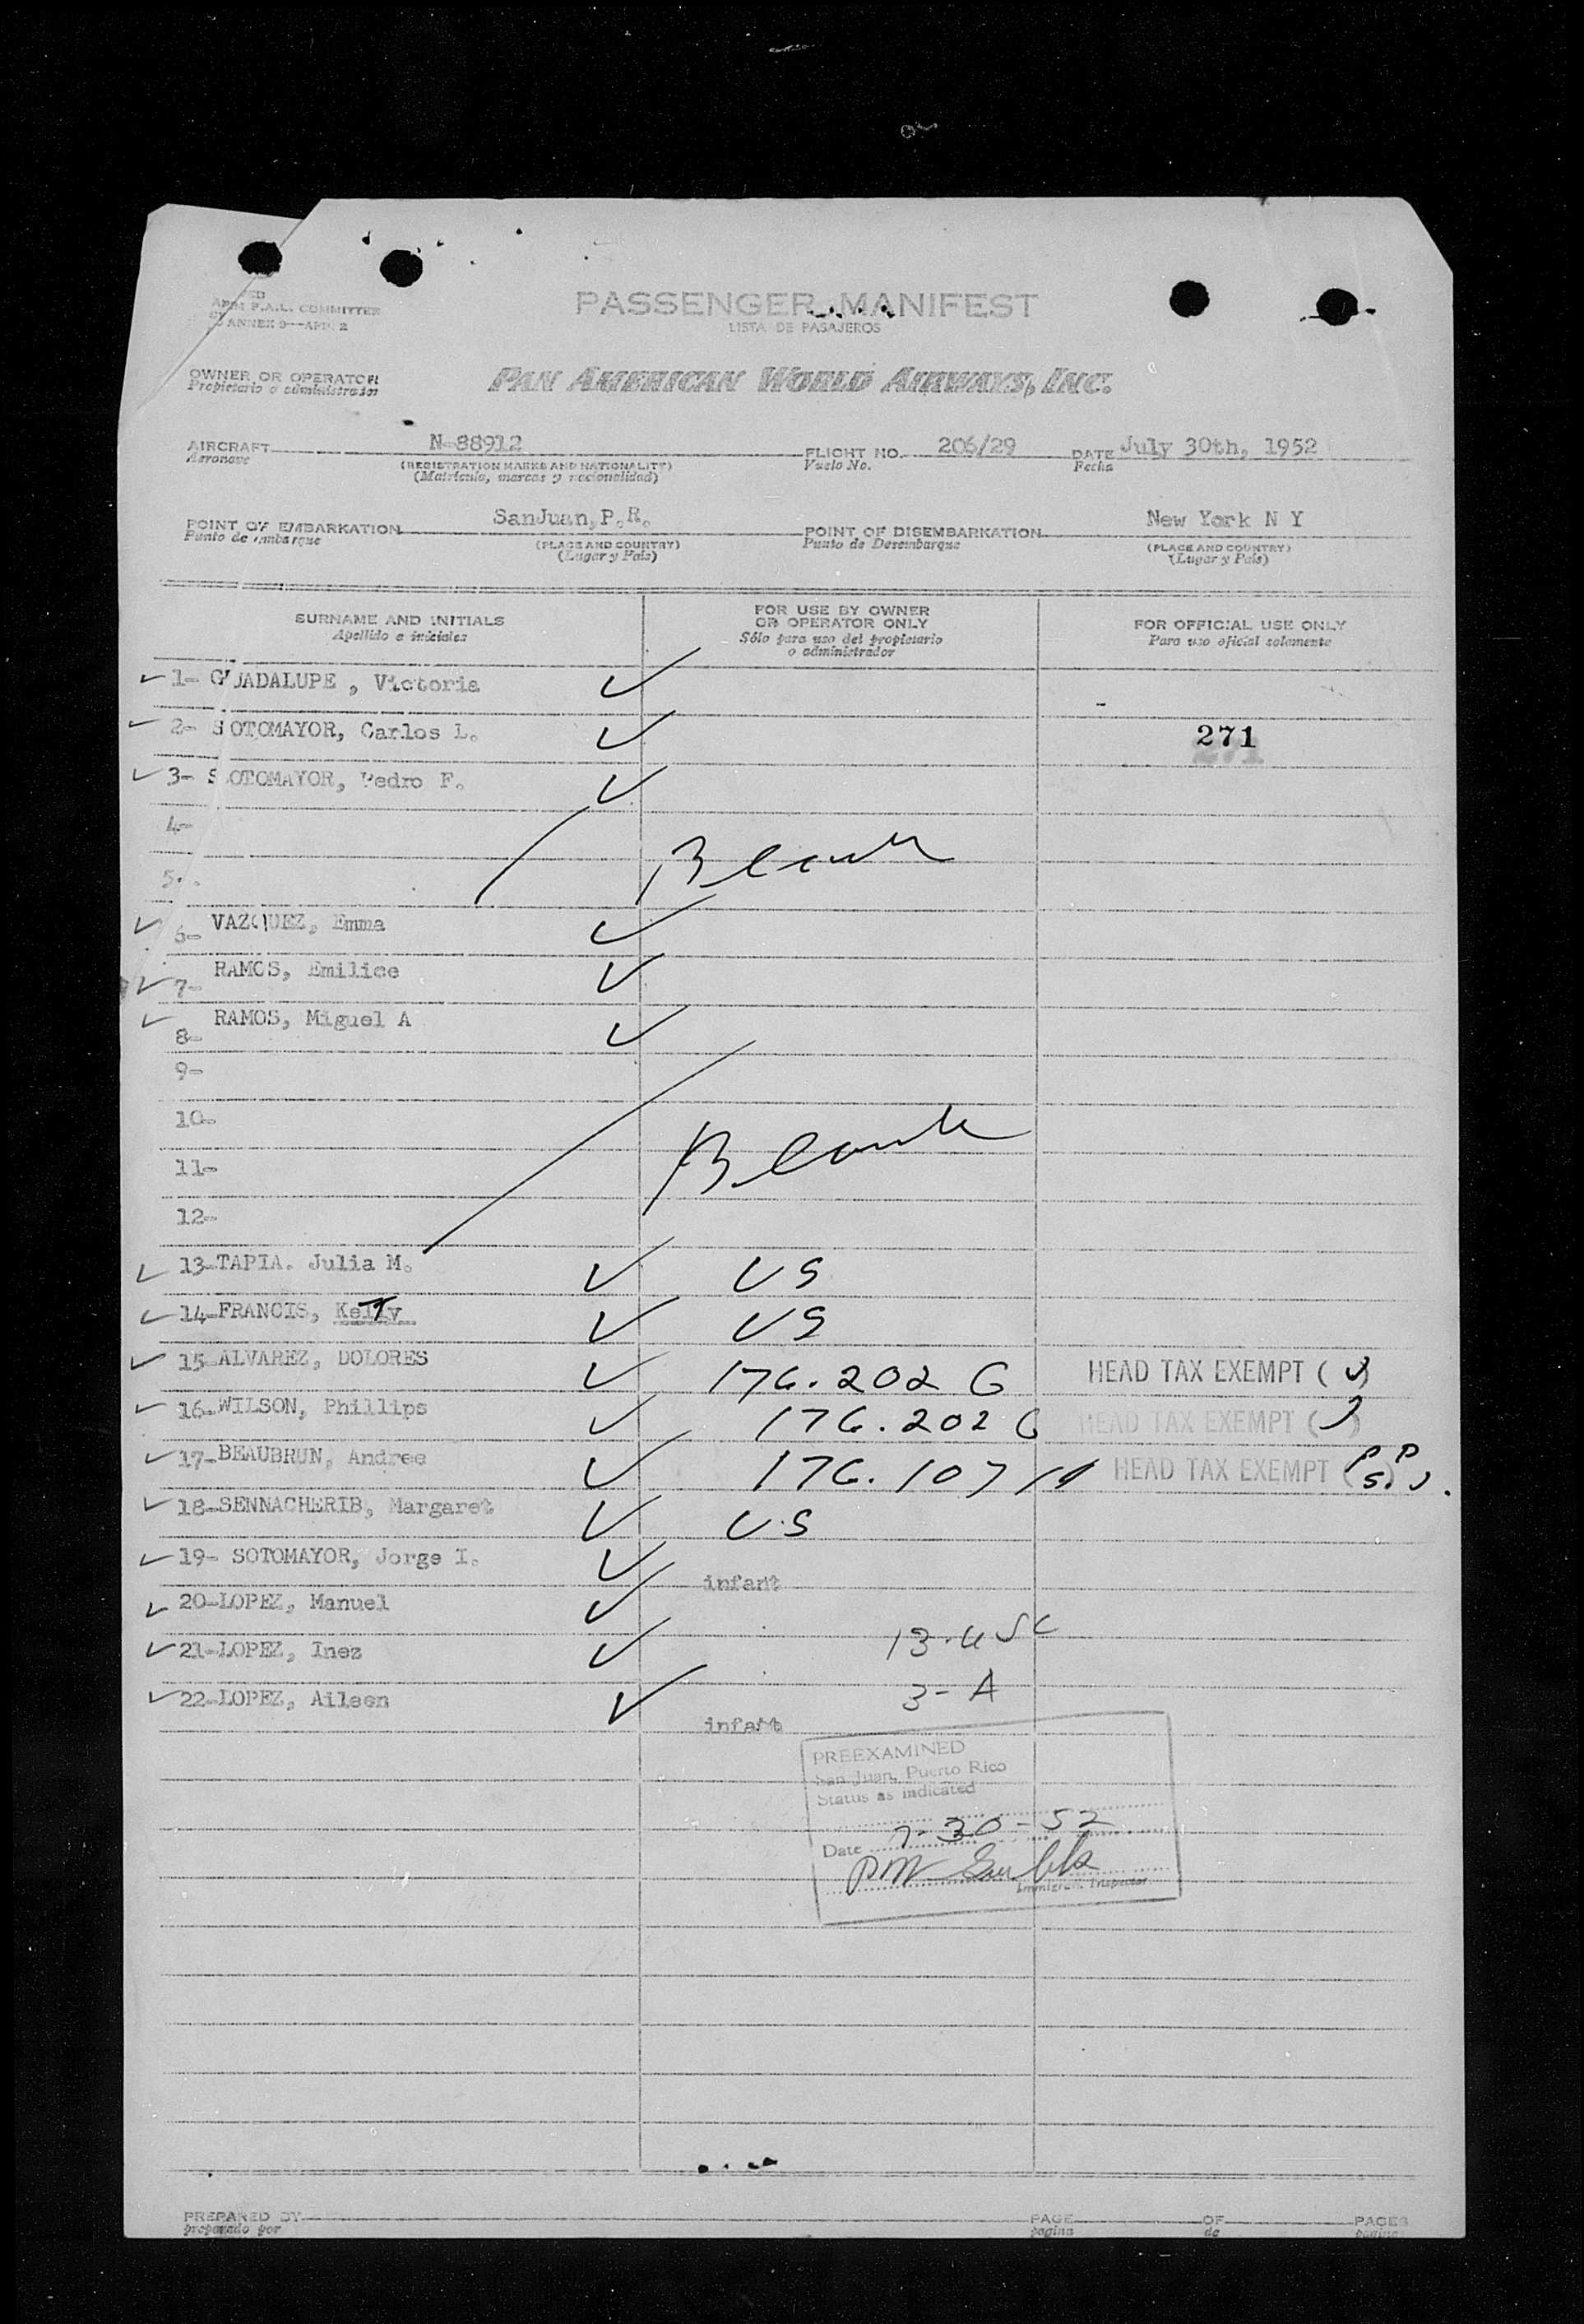 APIM F.A.L. COMMITTEE
ANNEX 9—APP. 2
PASSENGER MANIFEST
LISTA DE PASAJEROS
OWNER OR OPERATOR
Propietario o administrador
PAN AMERICAN WORLD AIRWAYS, INC.
AIRCRAFT N-88912 FLIGHT NO. 206/29 DATE July 30th, 1952
Aeronave (REGISTRATION MARKS AND NATIONALITY) Vuelo No. Fecha
(Matrícula, marcas y nacionalidad)
POINT OF EMBARKATION SanJuan,P.R. POINT OF DISEMBARKATION New York N Y
Punto de embarque (PLACE AND COUNTRY) Punto de Desembarque (PLACE AND COUNTRY)
(Lugar y País) (Lugar y País)
SURNAME AND INITIALS
Apellido e iniciales
FOR USE BY OWNER
OR OPERATOR ONLY
Sólo para uso del propietario
o administrador
FOR OFFICIAL USE ONLY
Para uso oficial solamente
1- GUADALUPE , Victoria
2- SOTOMAYOR, Carlos L. 271
3- SOTOMAYOR, Pedro F.
4-
Blank
5-
6- VAZQUEZ, Emma
7- RAMOS, Emilice
8- RAMOS, Miguel A
9-
10-
Blank
11-
12-
13-TAPIA. Julia M. US
14-FRANCIS, Kelly US
15-ALVAREZ, DOLORES 176.202 G HEAD TAX EXEMPT ( )
16-WILSON, Phillips 176.202 G HEAD TAX EXEMPT ( )
17-BEAUBRUN, Andree 176.107 HEAD TAX EXEMPT
18-SENNACHERIB, Margaret U.S
19- SOTOMAYOR, Jorge I. infant
20-LOPEZ, Manuel
21-LOPEZ, Inez 13-USC
22-LOPEZ, Aileen 3-A
infant
PREEXAMINED
San Juan, Puerto Rico
Status as indicated
Date 7-30-52
Immigrant Inspector
PREPARED BY PAGE OF PAGES
preparado por pagina de paginas